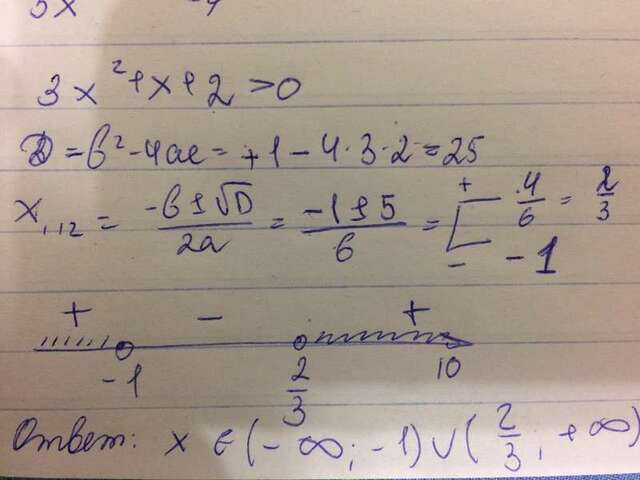 3x² + x + 2 > 0
D = b² - 4ac = +1 - 4·3·2 = 25
x₁,₂ = (-b ± √D)/2a = (-1 ± 5)/6 = + 4/6 = 2/3
- -1
+ - +
-1 2/3 10
Ответ: x ∈ (-∞; -1) ∪ (2/3, +∞)